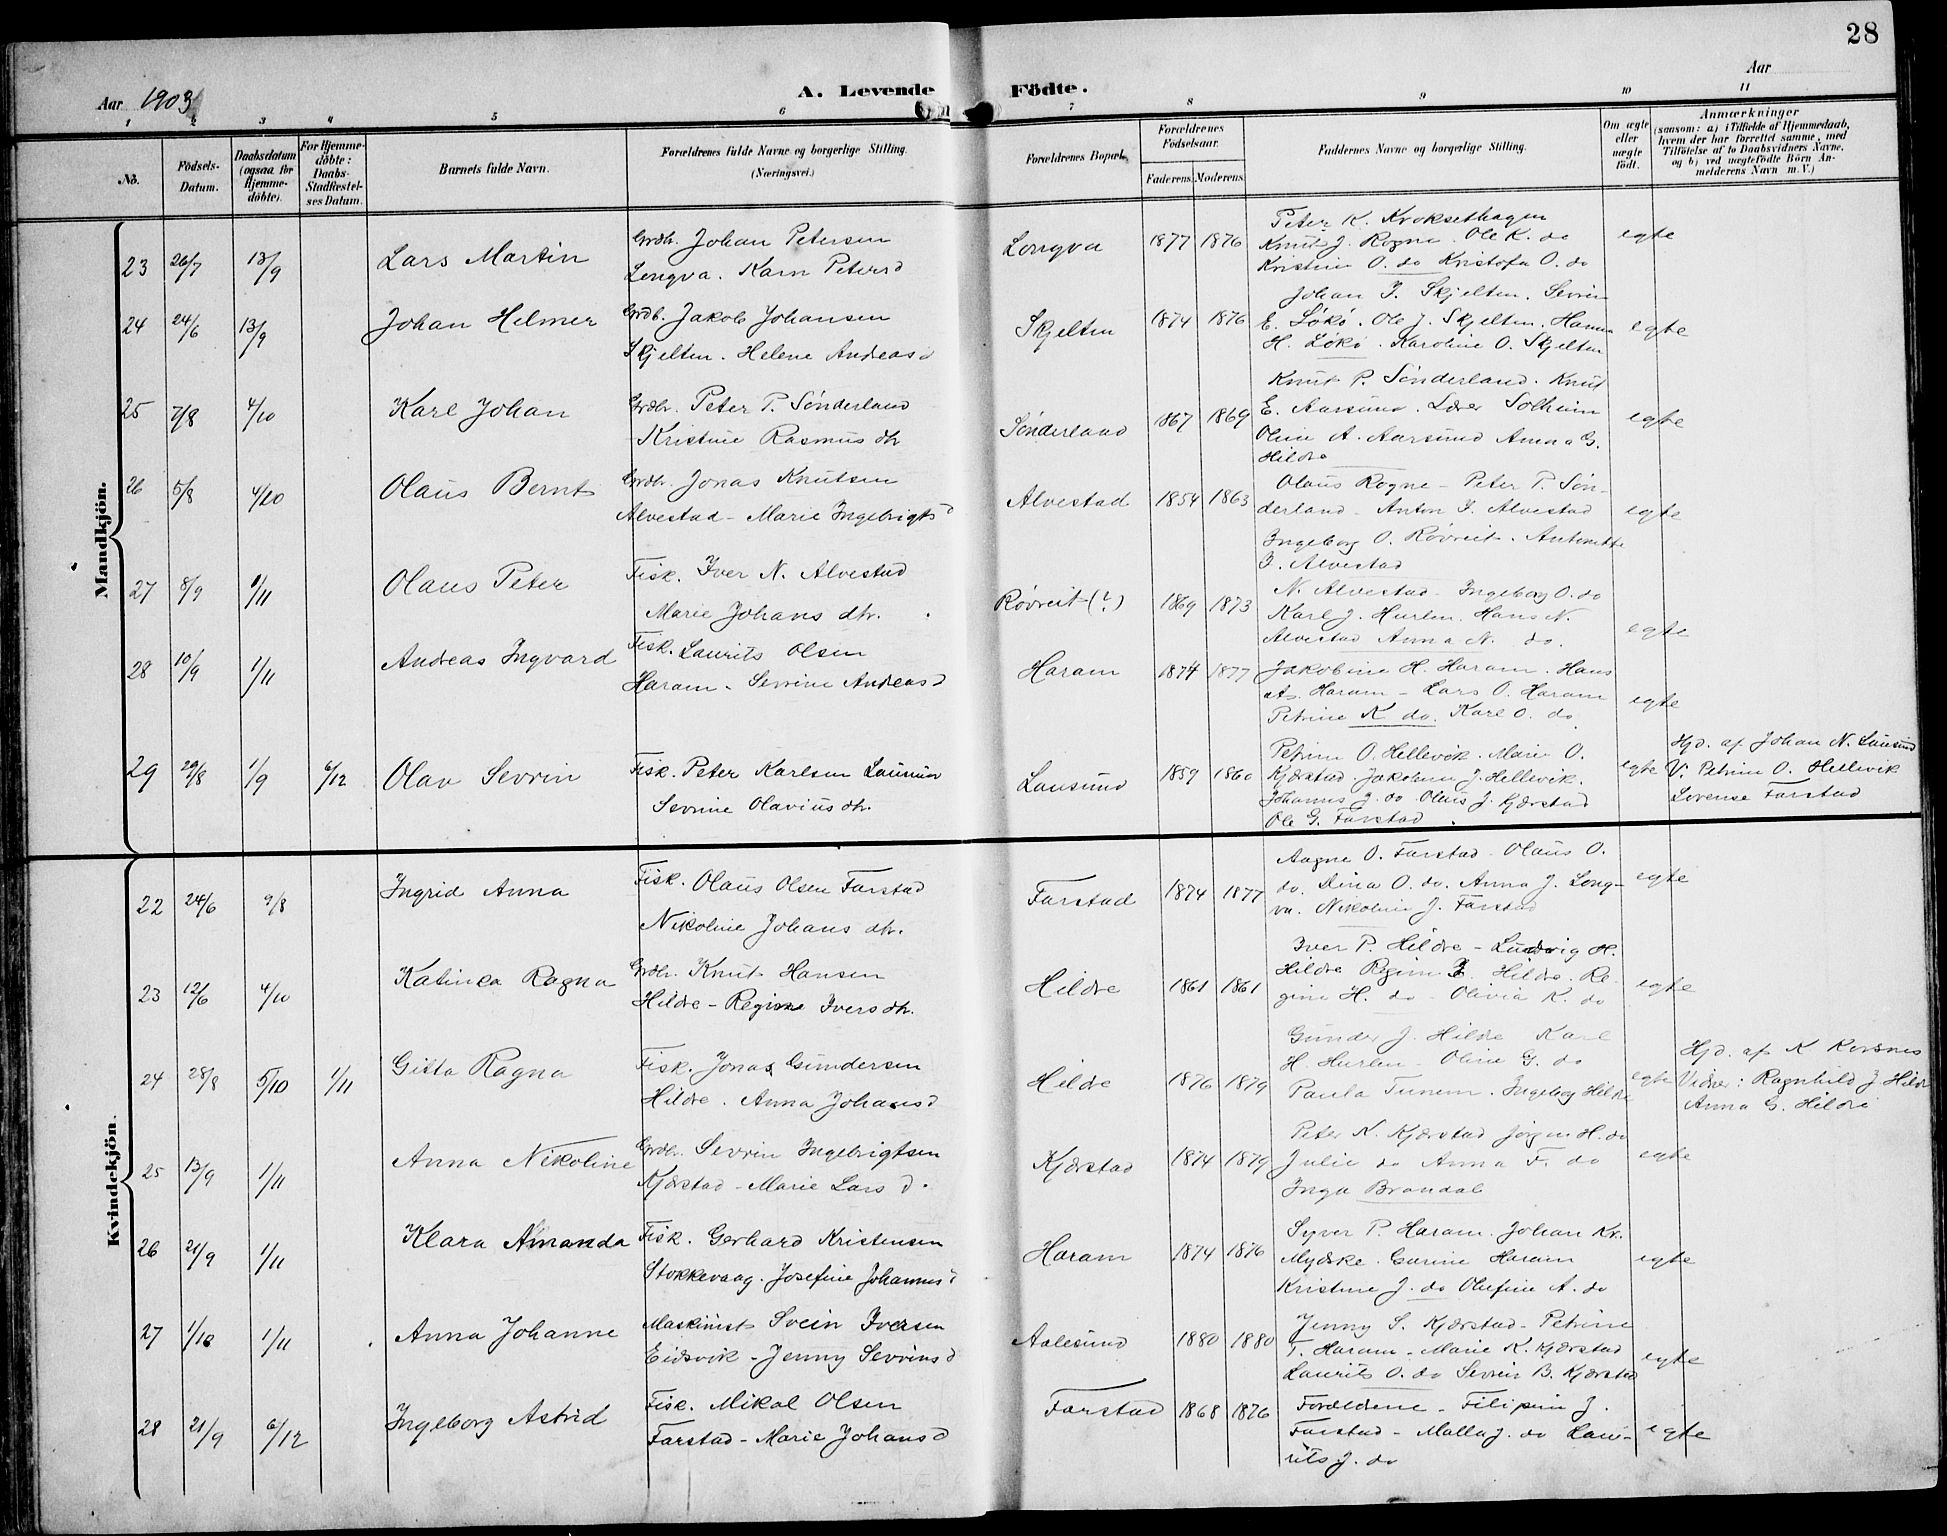 28
Aar 1903
A. Levende Födte.
Aar
1 2 3 4 5 6 7 8 9 10 11
No.
Födsels-Datum.
Daabsdatum (ogsaa for Hjemme-döbte).
For Hjemme-döbte: Daabs-Stadfæstel-ses Datum.
Barnets fulde Navn.
Forældrenes fulde Navne og borgerlige Stilling.
(Næringsvei.)
Forældrenes Bopæl.
Forældrenes Födselsaar.
Faderens Moderens
Faddernes Navne og borgerlige Stilling.
Om ægte eller uægte födt.
Anmærkninger
(saasom: a) i Tilfælde af Hjemmedaab,
hvem der har forrettet samme, med
Tilföielse af to Daabsvidners Navne,
og b) ved uægtefödte Börn An-
melderens Navn m. V.)
Mandkjön.
23 26/7 13/9 Lars Martin
Grdbr. Johan Petersen
Longva. Karn Petersd
Longva 1877 1876
Peter K. Kroksethagen
Knut J. Rogne. Ole K. do
Kristine O. do Kristofa O. do
egte
24 24/6 13/9 Johan Helmer
Grdb. Jakob Johansen
Skjelten. Helene Andreasd
Skjelten 1874 1876
Johan J. Skjelten. Sevrin
E. Løkø. Ole J. Skjelten. Hanna
H. Løkø. Karoline O. Skjelten
egte
25 7/8 4/10 Karl Johan
Grdbr. Peter P. Sønderland
Kristine Rasmusdtr
Sønderland 1867 1869
Knut P. Sønderland. Knut
E. Aarsund. Lærer Solheim
Oline A. Aarsund Anna G.
Hildre
egte
26 5/8 4/10 Olaus Bernt
Grdbr. Jonas Knutsen
Alvestad - Marie Ingebrigtsd
Alvestad 1854 1863
Olaus Rogne - Peter P. Søn-
derland - Anton J. Alvestad
Ingeborg O. Røvreit. Antonette
J. Alvestad
egte
27 8/9 1/11 Olaus Peter
Fisk. Iver N. Alvestad
Marie Johans dtr.
Røvreit (?) 1869 1873
N. Alvestad - Ingeborg O. do
Karl J. Hurlen. Hans N.
Alvestad Anna N. do.
egte
28 10/9 1/11 Andreas Ingvard
Fisk. Laurits Olsen
Haram - Sevrine Andreasd
Haram 1874 1877
Jakobine H. Haram. Hans
A. Haram - Lars O. Haram
Petrine K do. Karl O. do
egte
29 29/8 1/9 6/12 Olav Sevrin
Fisk. Peter Karlsen Lausund
Sevrine Olavius dtr.
Lausund 1859 1860
Petrine O. Hellevik. Marie O.
Kjærstad. Jakobine J. Hellevik.
Johannes J. do Olaus J. Kjærstad
Ole G. Farstad
egte
Hjd. af Johan N. Lausund
V. Petrine O. Hellevik
Lovense Farstad
Kvindekjön.
22 24/6 9/8 Ingrid Anna
Fisk. Olaus Olsen Farstad
Nikoline Johans dtr.
Farstad 1874 1877
Aagne O. Farstad - Olaus O.
do. Dina O. do. Anna J. Long-
va. Nikoline J. Farstad
egte
23 12/6 4/10 Katinea Ragna
Grdbr. Knut Hansen
Hildre - Regine Iversdtr.
Hildre 1861 1861
Iver P. Hildre - Ludvig H.
Hildre Regine I. Hildre. Re-
gine H. do - Olivia K. do
egte
24 28/8 5/10 1/11 Gitta Ragna
Fisk. Jonas Gundersen
Hildre. Anna Johansd
Hildre 1876 1879
Gunder J. Hildre Karl
H. Hurlen - Oline G. do
Paula Tunem. Ingeborg Hildre
egte
Hjd. af K Rovsnes
Vidner: Ragnhild J Hildre
Anna G. Hildre
25 13/9 1/11 Anna Nikoline
Grdbr. Sevrin Ingebrigtsen
Kjærstad - Marie Lars d.
Kjærstad 1874 1879
Peter N. Kjærstad Jørgen H. do
Julie do Anna F. do
Inga Brandal
egte
26 21/9 1/11 Klara Amanda
Fisk. Gerhard Kristensen
Stokkevaag. Josefine Johannesd
Haram 1874 1876
Syver P. Haram. Johan Kr.
Myrske. Gurine Haram
Kristine J. do Olufine A. do
egte
27 1/10 1/11 Anna Johanne
Maskinist Svein Iversen
Eidsvik - Jenny Sevrinsd
Aalesund 1880 1880
Jenny S. Kjærstad - Petrine
T. Haram - Marie K. Kjærstad
Laurits O. do Sevrin B. Kjærstad
egte
28 21/9 6/12 Ingeborg Astrid
Fisk. Mikal Olsen
Farstad - Marie Johansd
Farstad 1868 1876
Forældrene - Filipine J.
Farstad - Malla J. do Lau-
rits J. do
egte